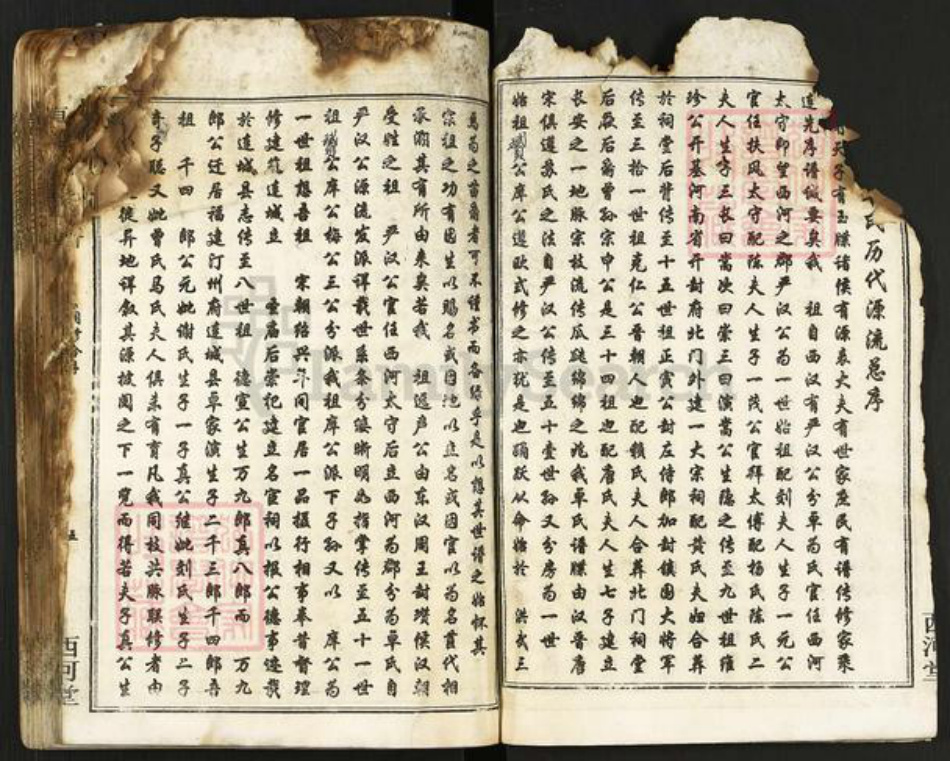 氏历代源流总序
天子有玉牒诸侯有源表大夫有世家庶民有谱传修家乘
先序谱诚要矣我 祖自西汉有严汉公分卓为氏官任西河
太守即望西河之郡严汉公为一世始祖配刘夫人生子一元公
官任扶风太守配陈夫人生子一茂公官拜太傅配杨氏陈氏二
夫人生子三长曰嵩次曰崇三曰演嵩公生隐之传至九世祖维
珍公开基河南省开封府北门外建一大宗祠配黄氏夫妇合葬
于祠堂后背传至十五世祖正寅公封左侍郎加封镇国大将军
传至三拾一世祖克仁公晋朝人也配赖氏夫人合葬北门祠堂
后厥后裔曾孙宗申公是三十四祖也配唐氏夫人生七子建立
长安之一地脉宗枝流传瓜瓞绵绵之兆我卓氏谱牒由汉晋唐
宋俱遵苏氏之法自严汉公传至五十壹世孙又分房为一世
始祖贤公库公遵欧式修之亦犹是也踊跃以命始于 洪武三
焉为之苗裔者可不谨节而各缘乎是以想其世谱之始怀其
宗祖之功有因生以赐名或因地以立名或因官以为名贯代相
承溯其有所由来矣若我 祖远声公由东汉周王封瓒侯汉朝
受姓之祖 严汉公官任西河太守后立西河为郡分为卓氏自
严汉公源流发派详载世系条分缕晰明如指掌传至五十一世
祖贤公库公梅公三公分派我祖库公派下子孙又以 库公为
一世祖想吾祖 宋朝绍兴年间官居一品摄行相事奉旨督理
修建筑连城立 圣庙后崇祀建立名宦祠以报公德事迹载
于连城县志传至八世祖 德宣公生万九郎真八郎而 万九
郎公迁居福建汀州府连城县卓家演生子二千三郎千四郎吾
祖 千四 郎公元妣谢氏生子一子真公继妣刘氏生子二子
奇子聪又妣曾氏马氏夫人俱未有育凡我同枝共脉联修者由
徙异地详叙其源披阅之下一览而得若夫子真公生
五
西河堂
西河堂
FamilySearch